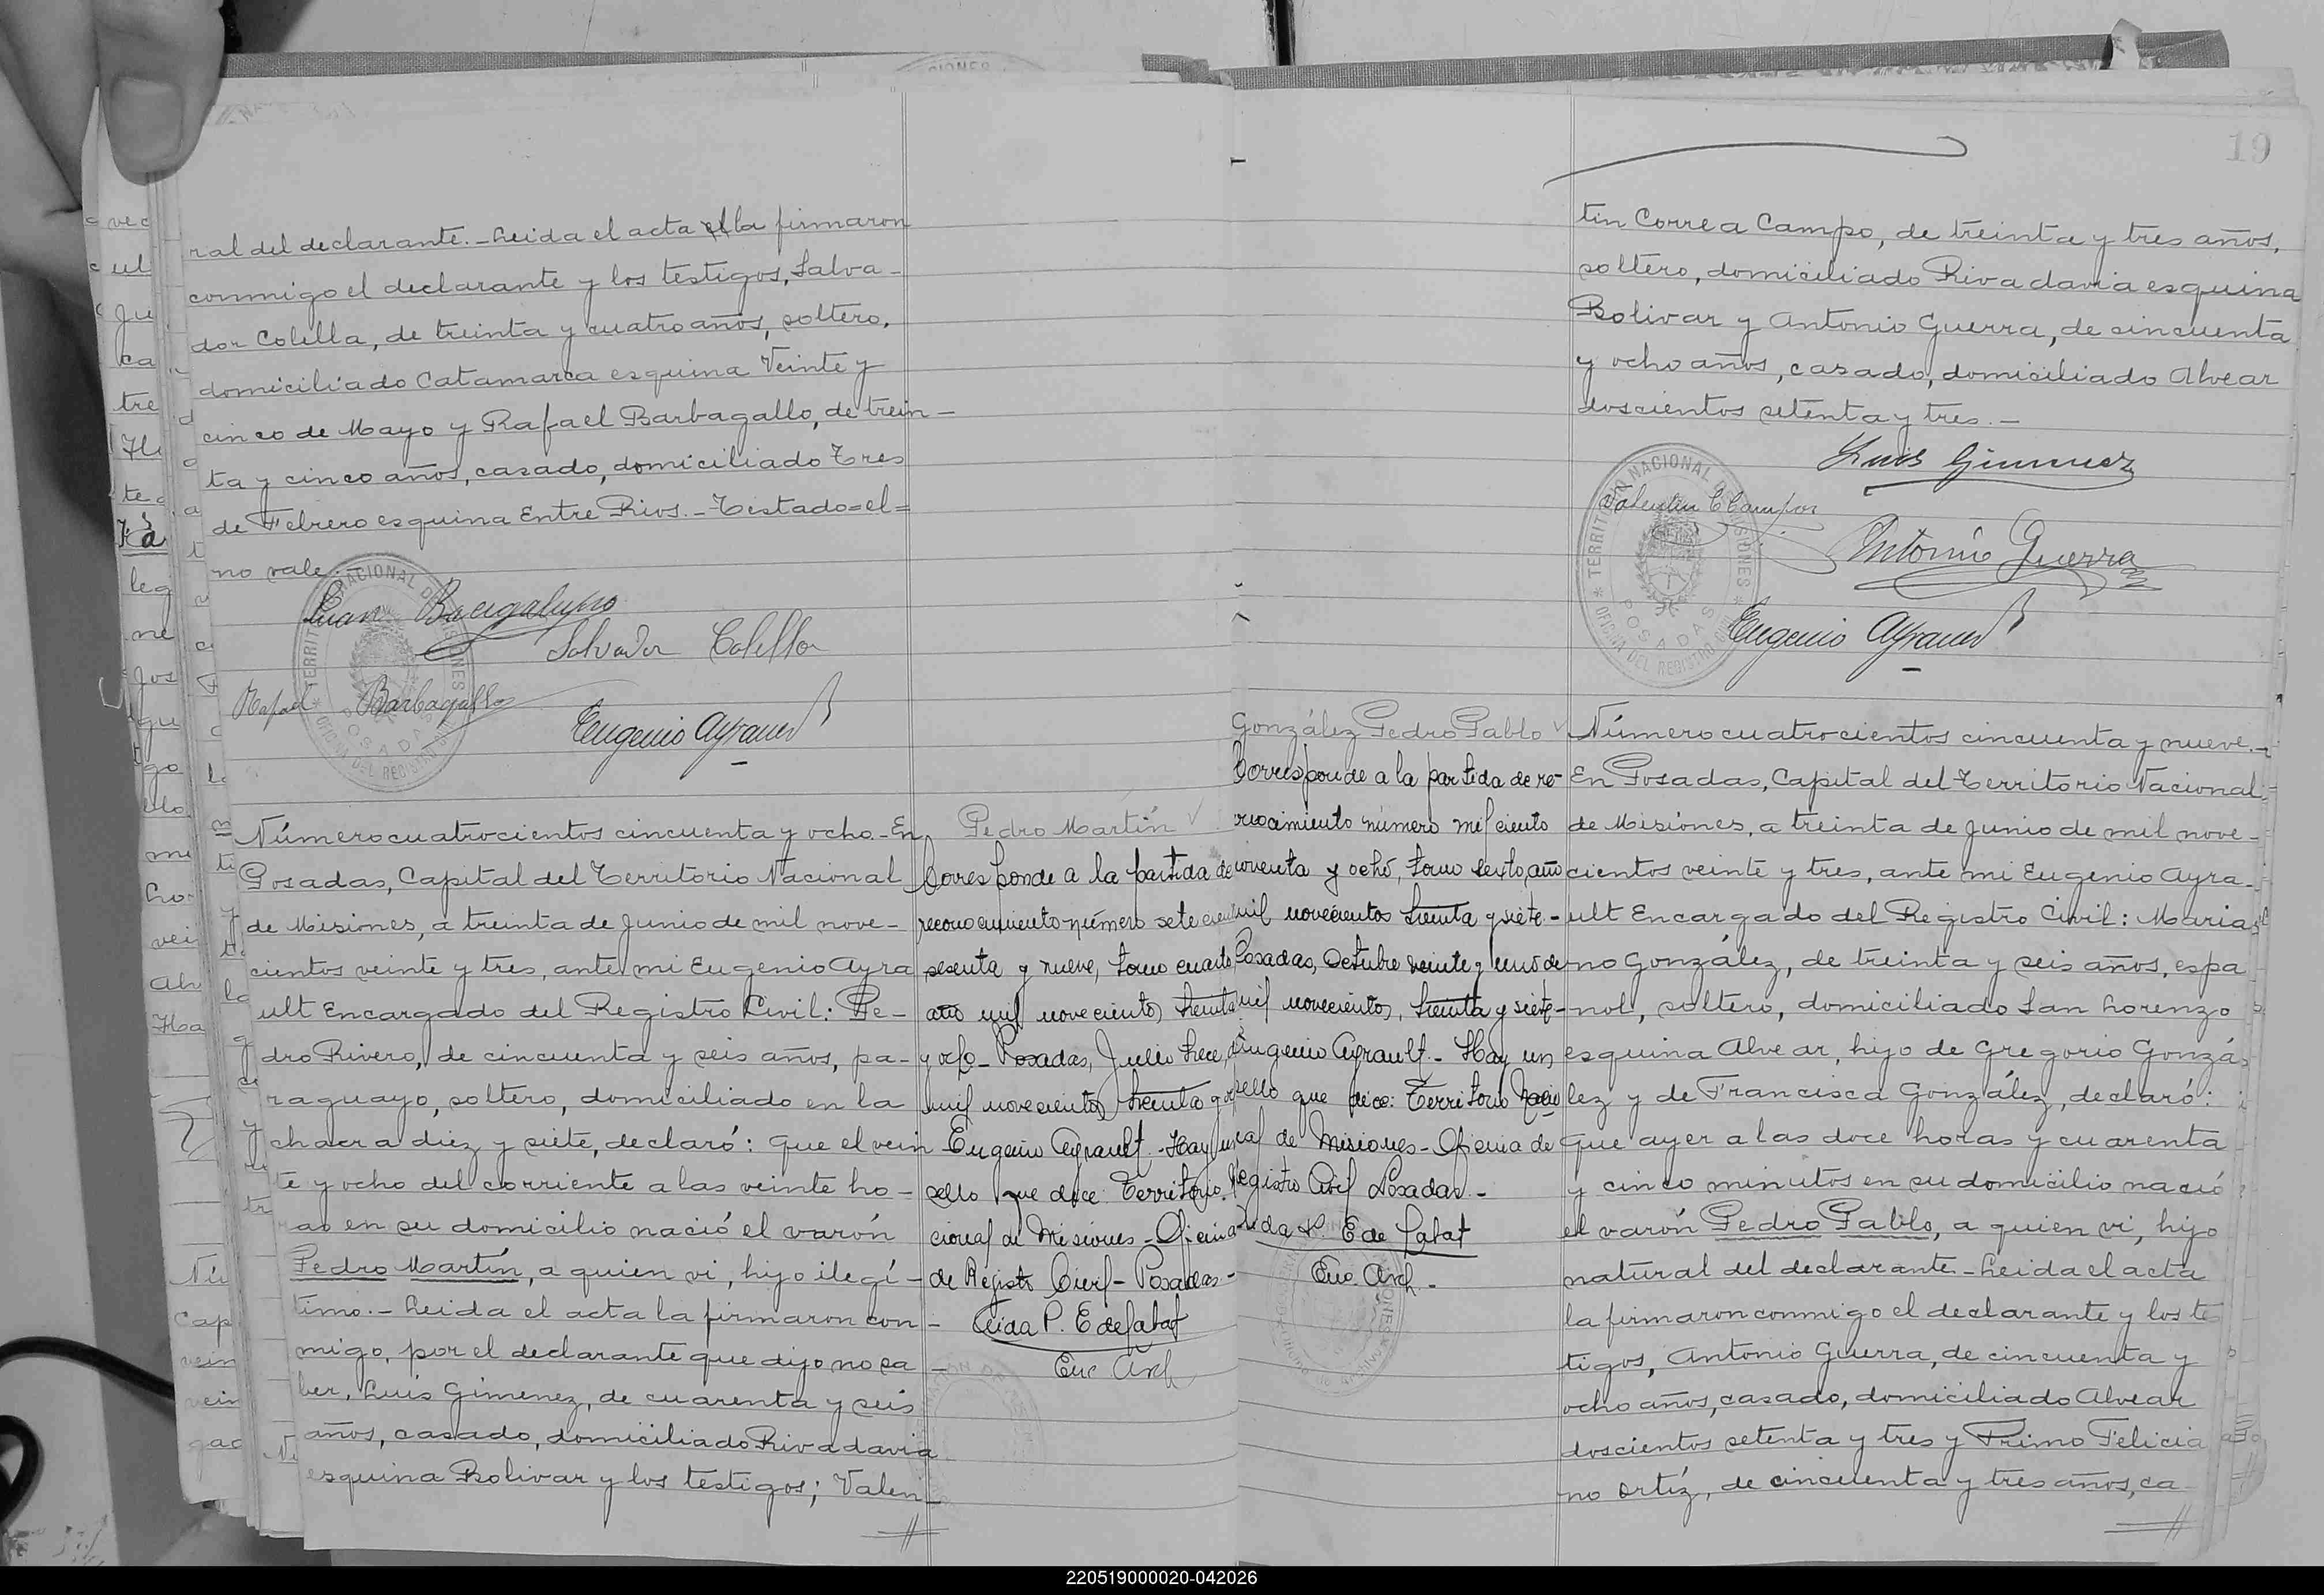 ral del declarante.- Leida el acta el la firmaron
conmigo el declarante y los testigos, Salva-
dor Colella, de treinta y cuatro años, soltero,
domiciliado Catamarca esquina Veinte y
cinco de Mayo y Rafael Barbagallo, de trein-
ta y cinco años, casado, domiciliado Tres
de Febrero esquina Entre Rios.- Testado=el=
no vale.-
Juan Bacigalupo
Salvador Colella
Rafael Barbagallo
Eugenio Ayrault
Número cuatrocientos cincuenta y ocho.- En
Posadas, Capital del Territorio Nacional
de Misiones, a treinta de Junio de mil nove-
cientos veinte y tres, ante mi Eugenio Ayra
ult Encargado del Registro Civil: Pe-
dro Rivero, de cincuenta y seis años, pa-
raguayo, soltero, domiciliado en la
chacra diez y siete, declaró: que el vein
te y ocho del corriente a las veinte ho-
ras en su domicilio nació el varón
Pedro Martín, a quien vi, hijo ilegí-
timo.- Leida el acta la firmaron con-
migo, por el declarante que dijo no sa-
ber, Luis Gimenez, de cuarenta y seis
años, casado, domiciliado Rivadavia
esquina Bolivar y los testigos; Valen-
Pedro Martín
Corresponde a la partida de
reconocimiento número sete cien
sesenta y nueve, tomo cuarto
año mil novecientos treinta
y ocho- Posadas, Julio trece,
mil novecientos treinta y o
Eugenio Ayrault.- Hay un
sello que dice: Territorio
cional de Misiones- Oficina
de Registro Civil- Posadas-
Leida P. E de Labat
Enc Arch
19
tin Correa Campo, de treinta y tres años,
soltero, domiciliado Rivadavia esquina
Bolivar y Antonio Guerra, de cincuenta
y ocho años, casado, domiciliado Alvear
doscientos setenta y tres.-
Luis Gimenez
Valentin C Campos
Antonio Guerra
Eugenio Ayrault
TERRITORIO NACIONAL DE MISIONES
OFICINA DEL REGISTRO CIVIL
POSADAS
González Pedro Pablo
Corresponde a la partida de re-
conocimiento número mil ciento
noventa y ocho, tomo sexto, año
mil novecientos treinta y siete.-
Posadas, Octubre veinte y uno de
mil novecientos, treinta y siete-
Eugenio Ayrault.- Hay un
sello que dice: Territorio Nacio
nal de Misiones- Oficina de
Registro Civil Posadas.-
Leida P. E de Labat
Enc. Arch.-
Número cuatrocientos cincuenta y nueve.-
En Posadas, Capital del Territorio Nacional
de Misiones, a treinta de Junio de mil nove-
cientos veinte y tres, ante mi Eugenio Ayra-
ult Encargado del Registro Civil: Maria
no González, de treinta y seis años, espa
nol, soltero, domiciliado San Lorenzo
esquina Alvear, hijo de Gregorio Gonzá
lez y de Francisca González, declaró:
que ayer a las doce horas y cuarenta
y cinco minutos en su domicilio nació
el varón Pedro Pablo, a quien vi, hijo
natural del declarante.- Leida el acta
la firmaron conmigo el declarante y los te
tigos, Antonio Guerra, de cincuenta y
ocho años, casado, domiciliado Alvear
doscientos setenta y tres y Primo Felicia
no Ortíz, de cincuenta y tres años, ca
220519000020-042026